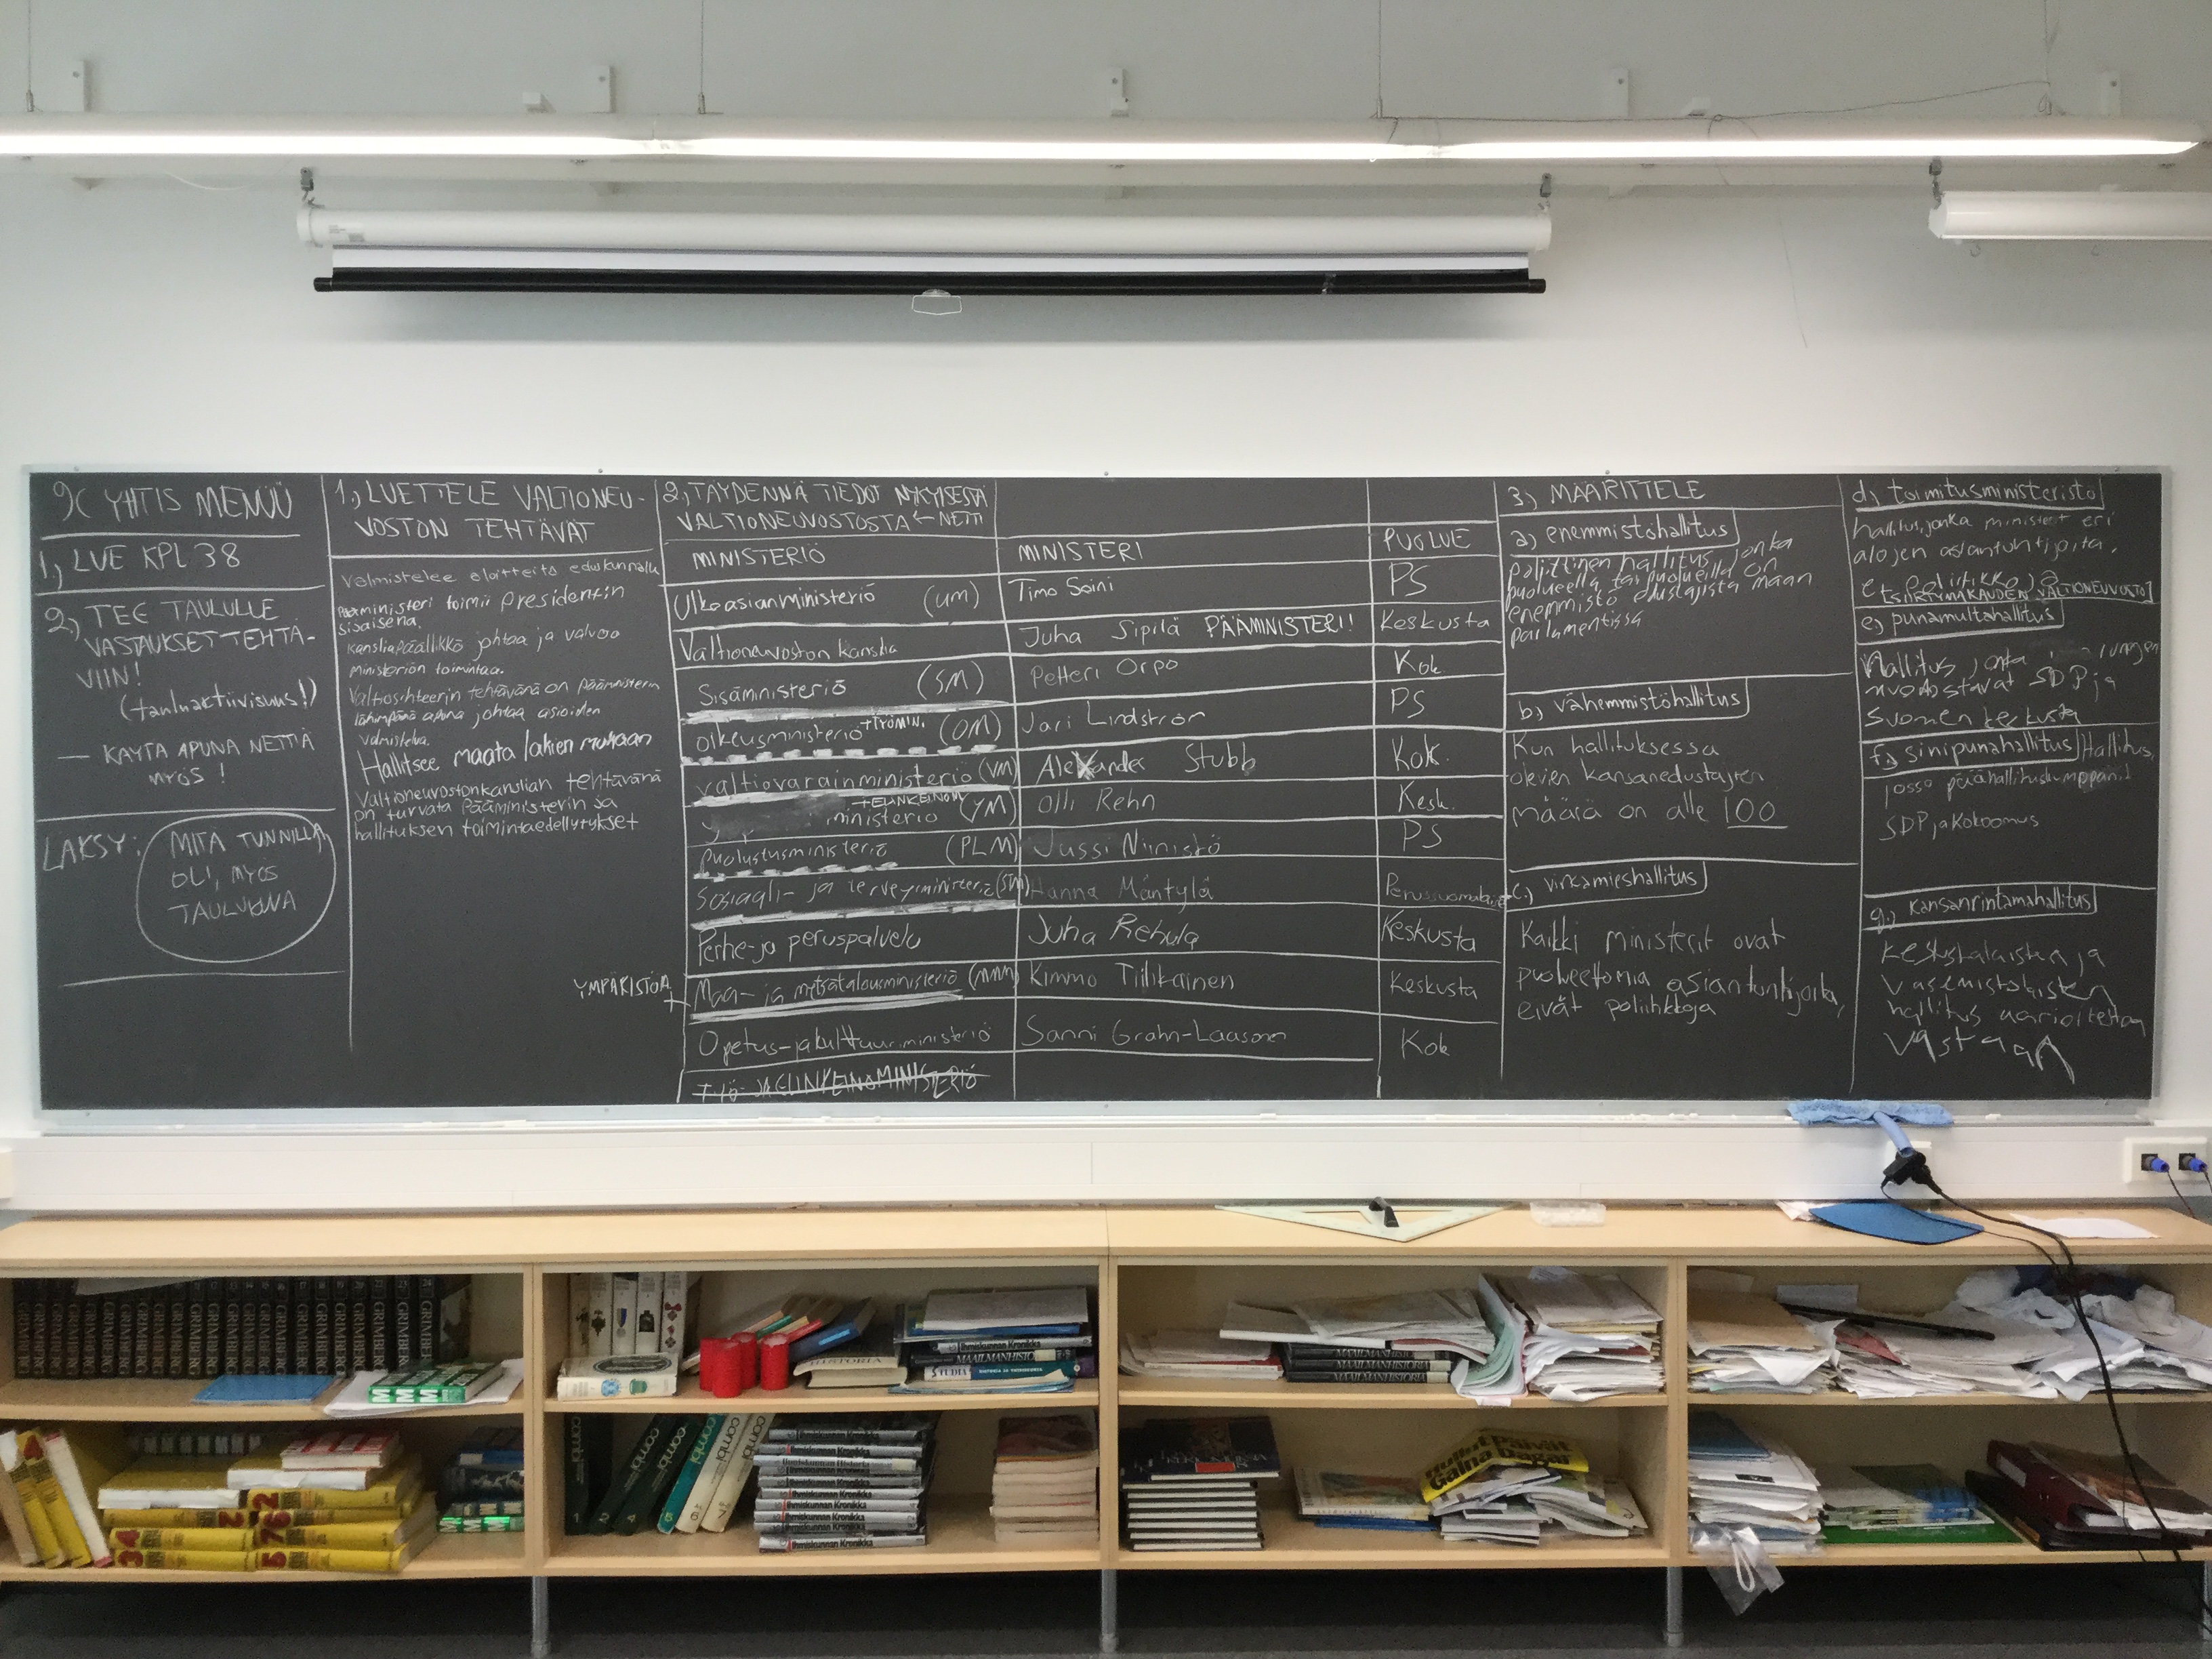 9C YHTIS MENÜÜ
1.) LUE KPL 38
2.) TEE TAULULLE
VASTAUKSET TEHTÄ-
VIIN!
(tauluaktiivisuus!)
— KÄYTÄ APUNA NETTIÄ
MYÖS!
LÄKSY:
MITÄ TUNNILLA
OLI, MYÖS
TAULUKKOA
1.) LUETTELE VALTIONEU-
VOSTON TEHTÄVÄT
Valmistelee aloitteita eduskunnalle
Pääministeri toimii presidentin
sijaisena.
kansliapäällikkö johtaa ja valvoo
ministeriön toimintaa.
Valtiosihteerin tehtävänä on pääministerin
lähimpänä apuna johtaa asioiden
valmistelua.
Hallitsee maata lakien mukaan
Valtioneuvostonkanslian tehtävänä
on turvata Pääministerin ja
hallituksen toimintaedellytykset
2.) TÄYDENNÄ TIEDOT NYKYISESTÄ
VALTIONEUVOSTOSTA ← NETTI
MINISTERIÖ MINISTERI PUOLUE
Ulkoasianministeriö (um) Timo Soini PS
Valtioneuvoston kanslia Juha Sipilä PÄÄMINISTERI!! Keskusta
Sisäministeriö (SM) Petteri Orpo Kok
oikeusministeriö +TYÖMIN. (OM) Jari Lindström PS
valtiovarainministeriö (VM) Alexander Stubb Kok.
ministeriö (YM) Olli Rehn Kesk.
puolustusministeriö (PLM) Jussi Niinistö PS
Sosiaali- ja terveysministeriö (STM) Hanna Mäntylä Perussuomalaiset
Perhe- ja peruspalvelu Juha Rehula Keskusta
YMPÄRISTÖ
+
Maa- ja metsätalousministeriö (MMM) Kimmo Tiilikainen Keskusta
Opetus- ja kulttuuriministeriö Sanni Grahn-Laasonen Kok
TYÖ- JA ELINKEINOMINISTERIÖ
3) MÄÄRITTELE
a) enemmistöhallitus
poliittinen hallitus, jonka
puolueella tai puolueilla on
enemmistö edustajista maan
parlamentissa
b) vähemmistöhallitus
Kun hallituksessa
olevien kansanedustajien
määrä on alle 100
c.) virkamieshallitus
Kaikki ministerit ovat
puolueettomia asiantuntijoita,
eivät poliitikkoja
d) toimitusministeristö
hallitus, jonka ministerit eri
alojen asiantuntijoita,
ei poliitikkoja
[SIIRTYMÄKAUDEN VALTIONEUVOSTO]
e) punamultahallitus
Hallitus jonka rungon
muodostavat SDP ja
Suomen keskusta
f.) sinipunahallitus Hallitus,
jossa päähallituskumppanit
SDP ja Kokoomus
g.) kansanrintamahallitus
keskustalaisten ja
vasemistolaisten
hallitus
vastaan
GRIMBERG
HISTORIA
Ihmiskunnan Kronikka
MAAILMANHISTORIA
STUDIA
HISTORIA JA YHTEISKUNTA
MAAILMANHISTORIA
MAAILMANHISTORIA
MAAILMANHISTORIA
combi
combi
combi
combi
Ihmiskunnan Kronikka
Ihmiskunnan Kronikka
Ihmiskunnan Kronikka
Hullut Päivät
Galna Dagar